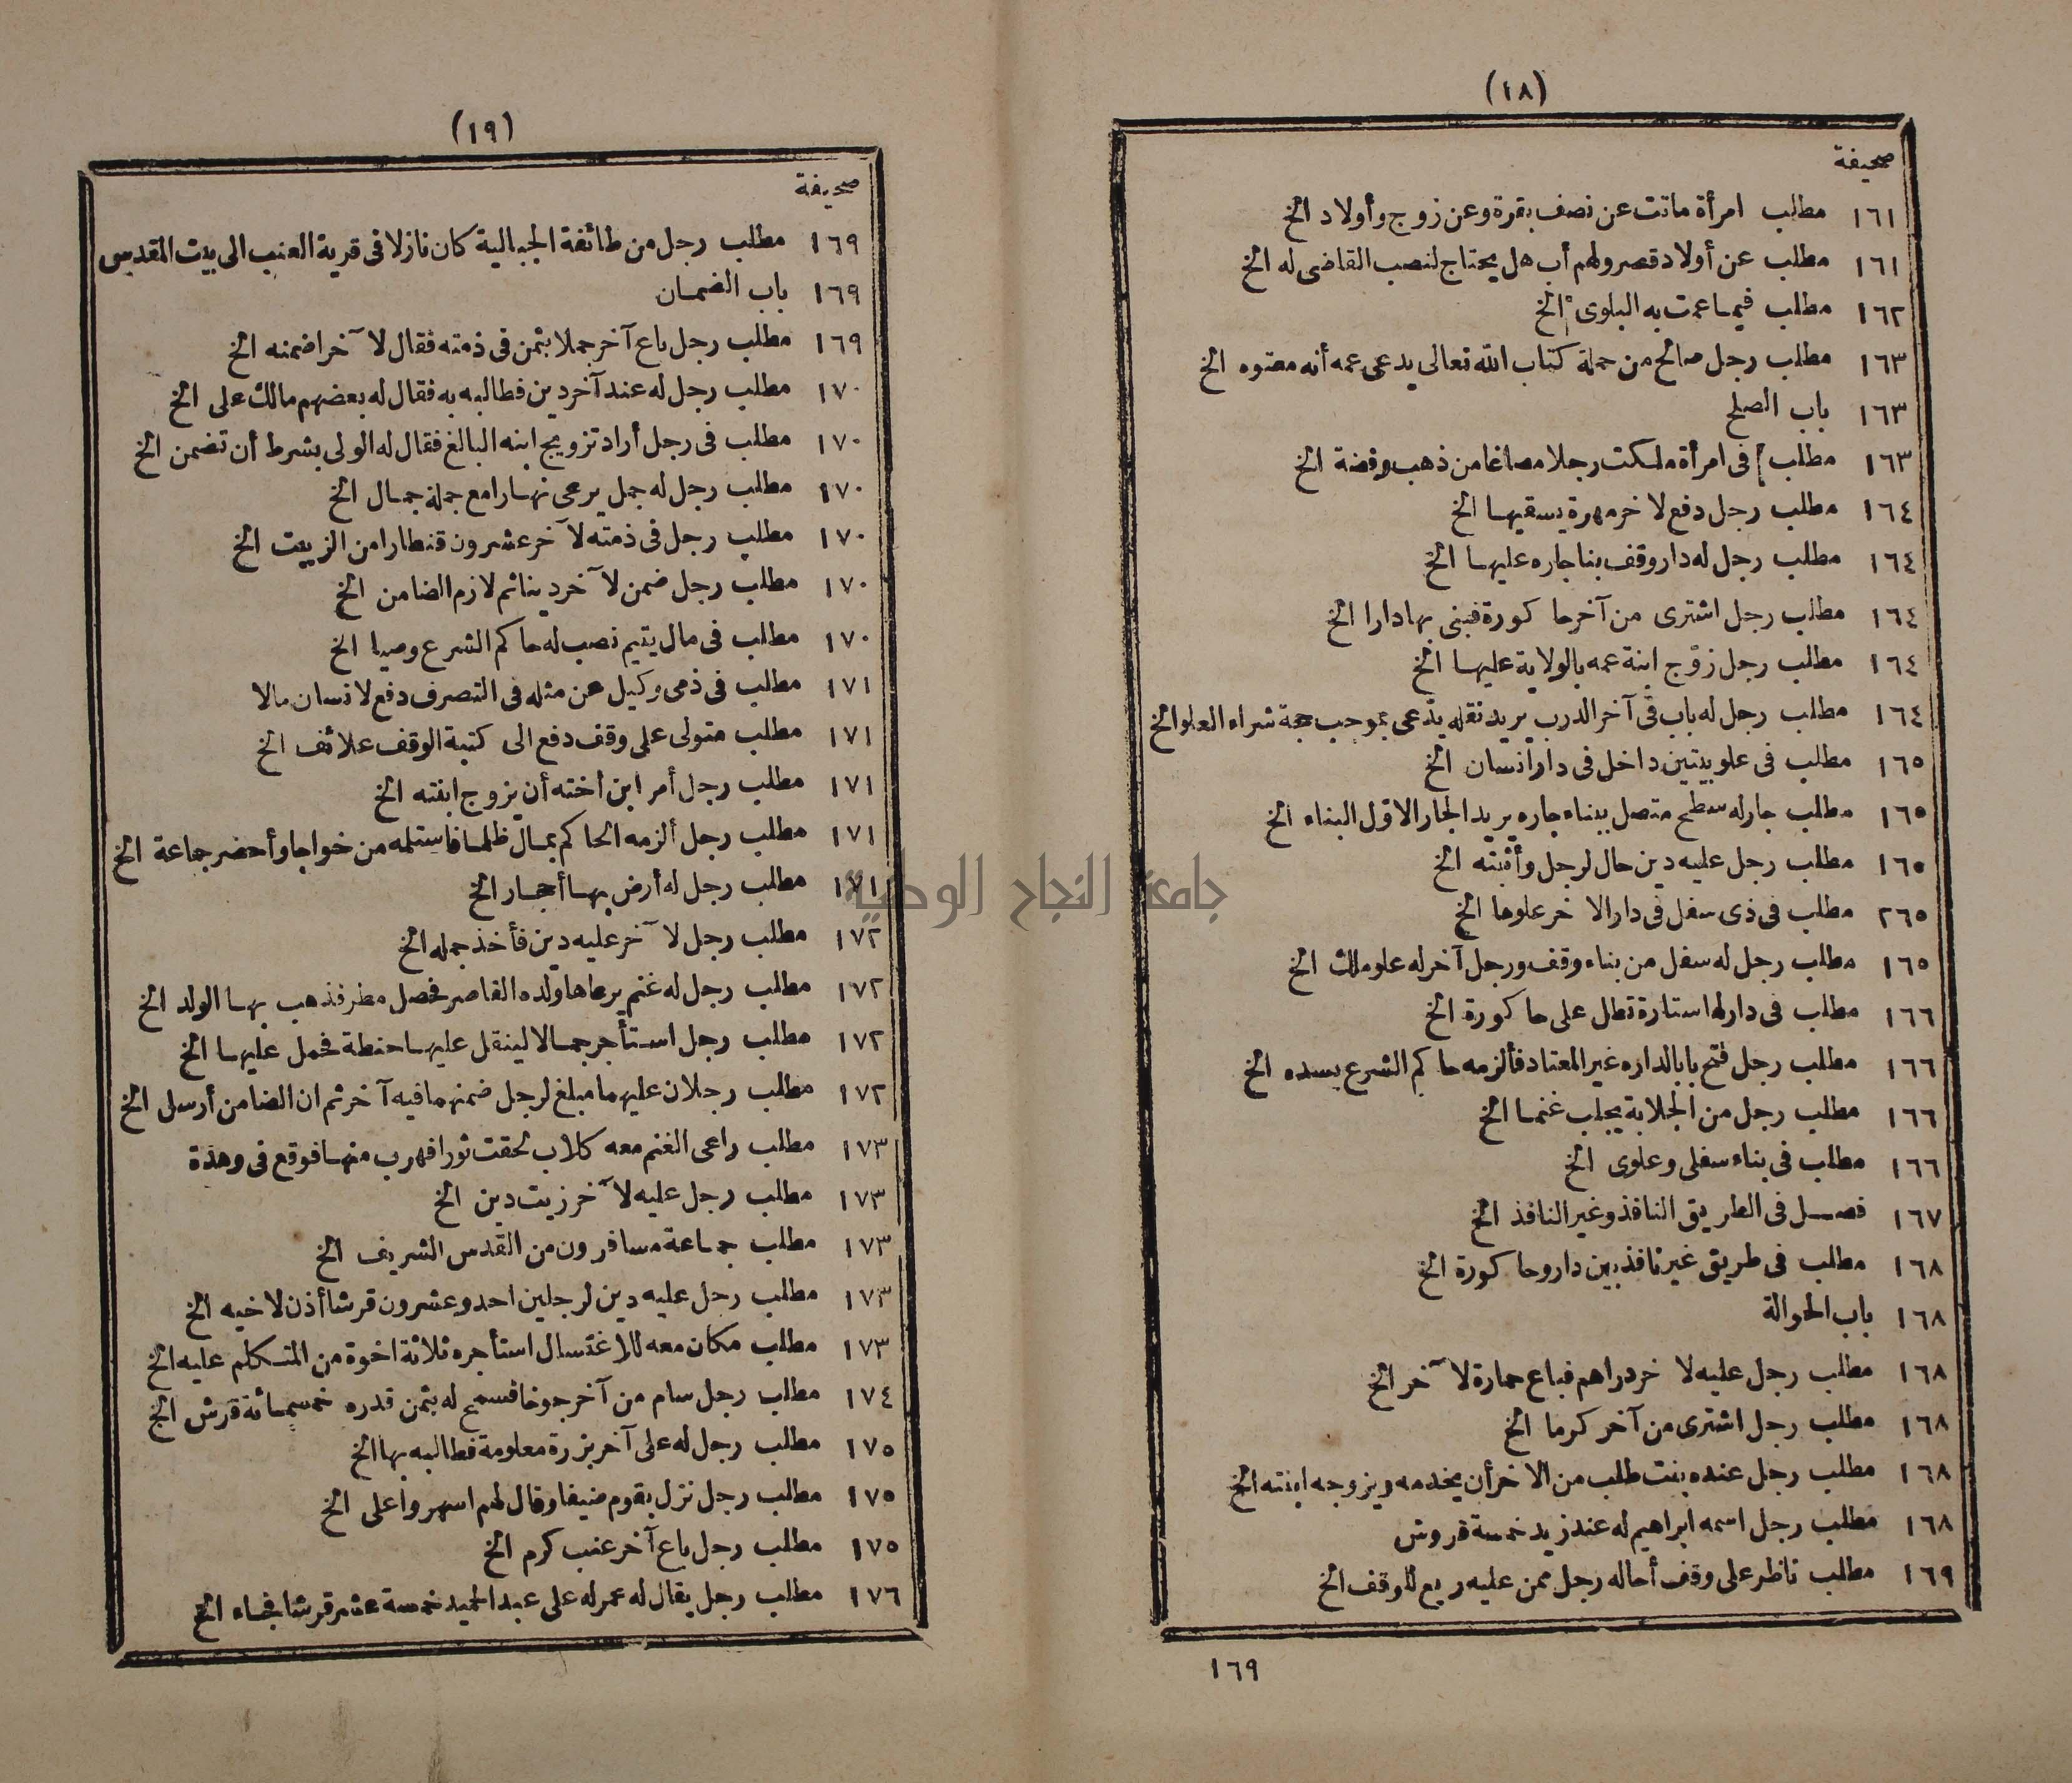 (١٨)
صحيفة
١٦١ مطلب امرأة ماتت عن نصف بقرة وعن زوج وأولاد الخ
١٦١ مطلب عن أولاد قصر ولهم أب هل يحتاج لنصب القاضى له الخ
١٦٢ مطلب فيما عمت به البلوى الخ
١٦٣ مطلب رجل صالح من حملة كتاب الله تعالى يدعى عمه أنه معتوه الخ
١٦٣ باب الصلح
١٦٣ مطلب فى امرأة ملكت رجلا مصاغا من ذهب وفضة الخ
١٦٤ مطلب رجل دفع لاخر مهرة يسقيها الخ
١٦٤ مطلب رجل له دار وقف بنا جاره عليها الخ
١٦٤ مطلب رجل اشترى من آخر حاكورة فبنى بها دارا الخ
١٦٤ مطلب رجل زوّج ابنة عمه بالولاية عليها الخ
١٦٤ مطلب رجل له باب فى آخر الدرب يريد نقله يدّعى بموجب حجة شراء العلو الخ
١٦٥ مطلب فى علو بيتين داخل فى دار انسان الخ
١٦٥ مطلب جار له سطح متصل ببناء جاره يريد الجار الاوّل البناء الخ
١٦٥ مطلب رجل عليه دين حال لرجل وأثبته الخ
٢٦٥ مطلب فى ذى سفل فى دار الاخر علوها الخ
١٦٥ مطلب رجل له سفل من بناء وقف ورجل آخر له علو ملك الخ
١٦٦ مطلب فى دار لها ستارة تطل على حاكورة الخ
١٦٦ مطلب رجل فتح بابا لداره غير المعتاد فألزمه حاكم الشرع بسده الخ
١٦٦ مطلب رجل من الجلابة يجلب غنما الخ
١٦٦ مطلب فى بناء سفلى وعلوى الخ
١٦٧ فصل فى الطريق النافذ وغير النافذ الخ
١٦٨ مطلب فى طريق غير نافذ بين دار وحاكورة الخ
١٦٨ باب الحوالة
١٦٨ مطلب رجل عليه لاخر دراهم فباع حمارة لآخر الخ
١٦٨ مطلب رجل اشترى من آخر كرما الخ
١٦٨ مطلب رجل عنده بنت طلب من الاخر أن يخدمه ويزوجه ابنته الخ
١٦٨ مطلب رجل اسمه ابراهيم له عند زيد خمسة قروش
١٦٩ مطلب ناظر على وقف أحاله رجل ممن عليه ريع للوقف الخ
١٦٩
(١٩)
صحيفة
١٦٩ مطلب رجل من طائفة الجبالية كان نازلا فى قرية العنب الى بيت المقدس
١٦٩ باب الضمان
١٦٩ مطلب رجل باع آخر جملا بثمن فى ذمته فقال لآخر اضمنه الخ
١٧٠ مطلب رجل له عند آخر دين فطالبه به فقال له بعضهم مالك على الخ
١٧٠ مطلب فى رجل أراد تزويج ابنه البالغ فقال له الولى بشرط أن تضمن الخ
١٧٠ مطلب رجل له جمل يرعى نهارا مع جملة جمال الخ
١٧٠ مطلب رجل فى ذمته لآخر عشرون قنطارا من الزيت الخ
١٧٠ مطلب رجل ضمن لآخر دينا ثم لازم الضامن الخ
١٧٠ مطلب فى مال يتيم نصب له حاكم الشرع وصيا الخ
١٧١ مطلب فى ذمى وكيل عن مثله فى التصرف دفع لانسان مالا
١٧١ مطلب متولى على وقف دفع الى كتبة الوقف علائف الخ
١٧١ مطلب رجل أمر ابن أخته أن يزوج ابنته الخ
١٧١ مطلب رجل ألزمه الحاكم بمال ظلما فاستلمه من خواجا وأحضر جماعة الخ
١٧١ مطلب رجل له أرض بها أحجار الخ
١٧٢ مطلب رجل لآخر عليه دين فأخذ جمله الخ
١٧٢ مطلب رجل له غنم يرعاها ولده القاصر فحصل مطر فذهب بها الولد الخ
١٧٢ مطلب رجل استأجر جمالا لينقل عليها حنطة فحمل عليها الخ
١٧٢ مطلب رجلان عليهما مبلغ لرجل ضمنهما فيه آخر ثم ان الضامن أرسل الخ
١٧٣ مطلب راعى الغنم معه كلاب لحقت ثورا فهرب منها فوقع فى وهدة
١٧٣ مطلب رجل عليه لآخر زيت دين الخ
١٧٣ مطلب جماعة مسافرون من القدس الشريف الخ
١٧٣ مطلب رجل عليه دين لرجلين احد وعشرون قرشا أذن لاخيه الخ
١٧٣ مطلب مكان معه للاغتسال استأجره ثلاثة اخوة من المتكلم عليه الخ
١٧٤ مطلب رجل سام من آخر جوخا فسمح له بثمن قدره خمسمائة قرش الخ
١٧٥ مطلب رجل له على آخر بزرة معلومة فطالبه بها الخ
١٧٥ مطلب رجل نزل بقوم ضيفا وقال لهم اسهروا على الخ
١٧٥ مطلب رجل باع آخر عنب كرم الخ
١٧٦ مطلب رجل يقال له عمر له على عبد الحميد خمسة عشر قرشا فجاء الخ
جامعة النجاح الوطنية